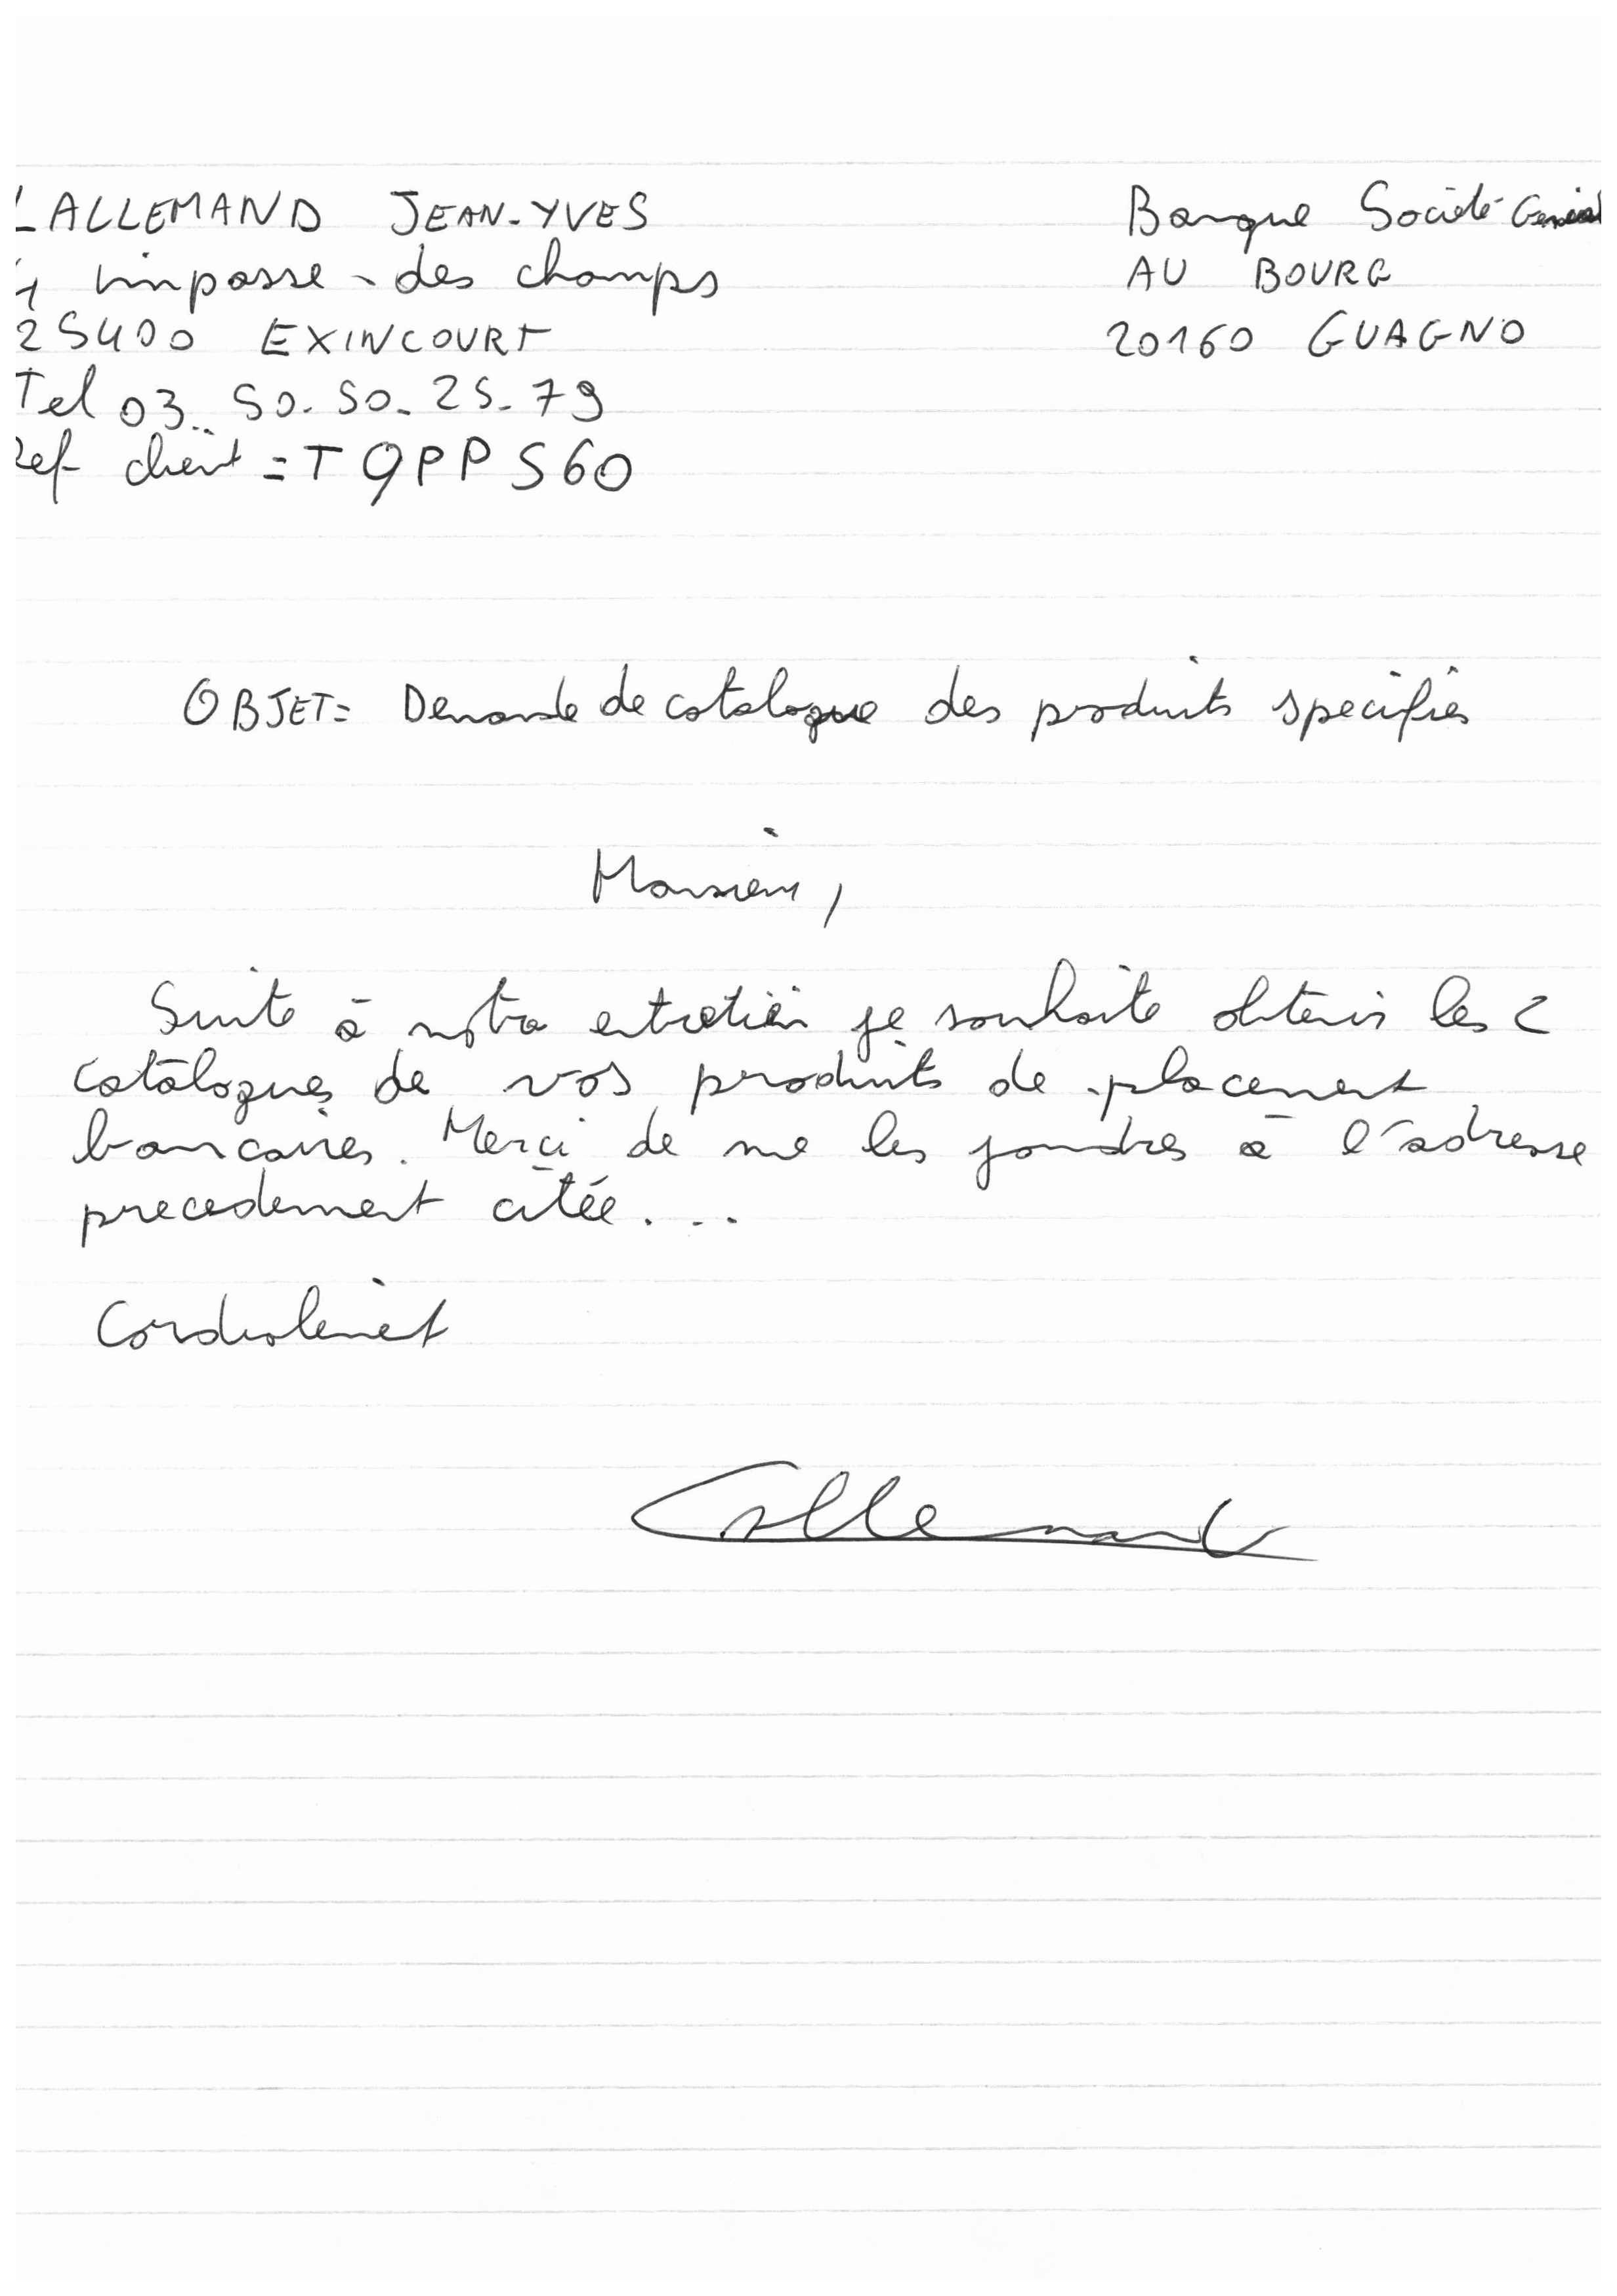 LALLEMAND JEAN-YVES
impasse des champs
25400 EXINCOURT
Tel 03. 50. 50. 25. 79
Ref client = T9PPS60
Banque Société
AU BOURG
20160 GUAGNO
OBJET = Demande de catalogue des produits specifiés
Monsieur,
Suite à notre entretien je souhaite obtenir les 2
catalogues de vos produits de placement
bancaires. Merci de me les joindres à l'adresse
precedement citée....
Cordialement
Lallemand